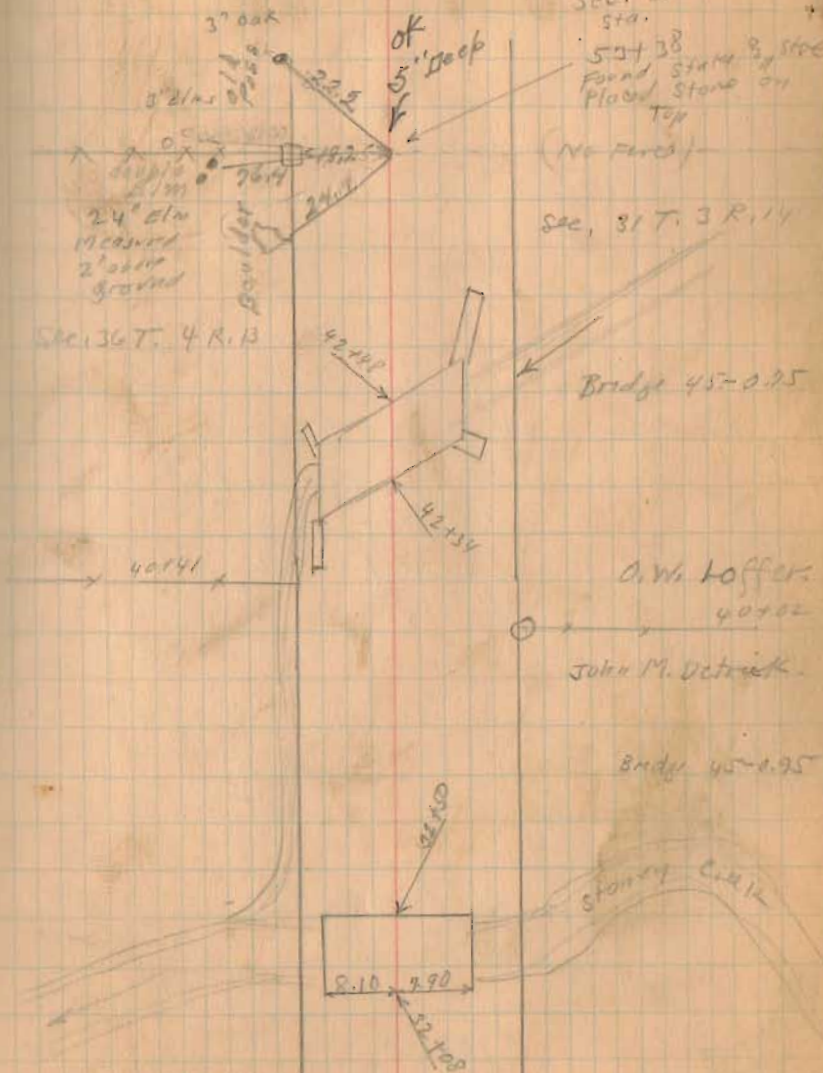 Sec.
Sta.
3" Oak
OK
5" Deep
53+38
Found Stake & Stone
Placed Stone on
Top
22.5
3" Elms
old
(No Fence)
18.25
76.4
Double
Elm
24.7
24" Elm
measured
2' above
ground
Boulder
Sec. 31 T. 3 R. 14
Sec. 36 T. 4 R. 13
42+48
Bridge 45-0.75
42+34
40+41
O.W. Loffer.
40+02
John M. Detrick.
Bridge 45-0.95
32+50
Stoney Creek
8.10 7.90
32+08